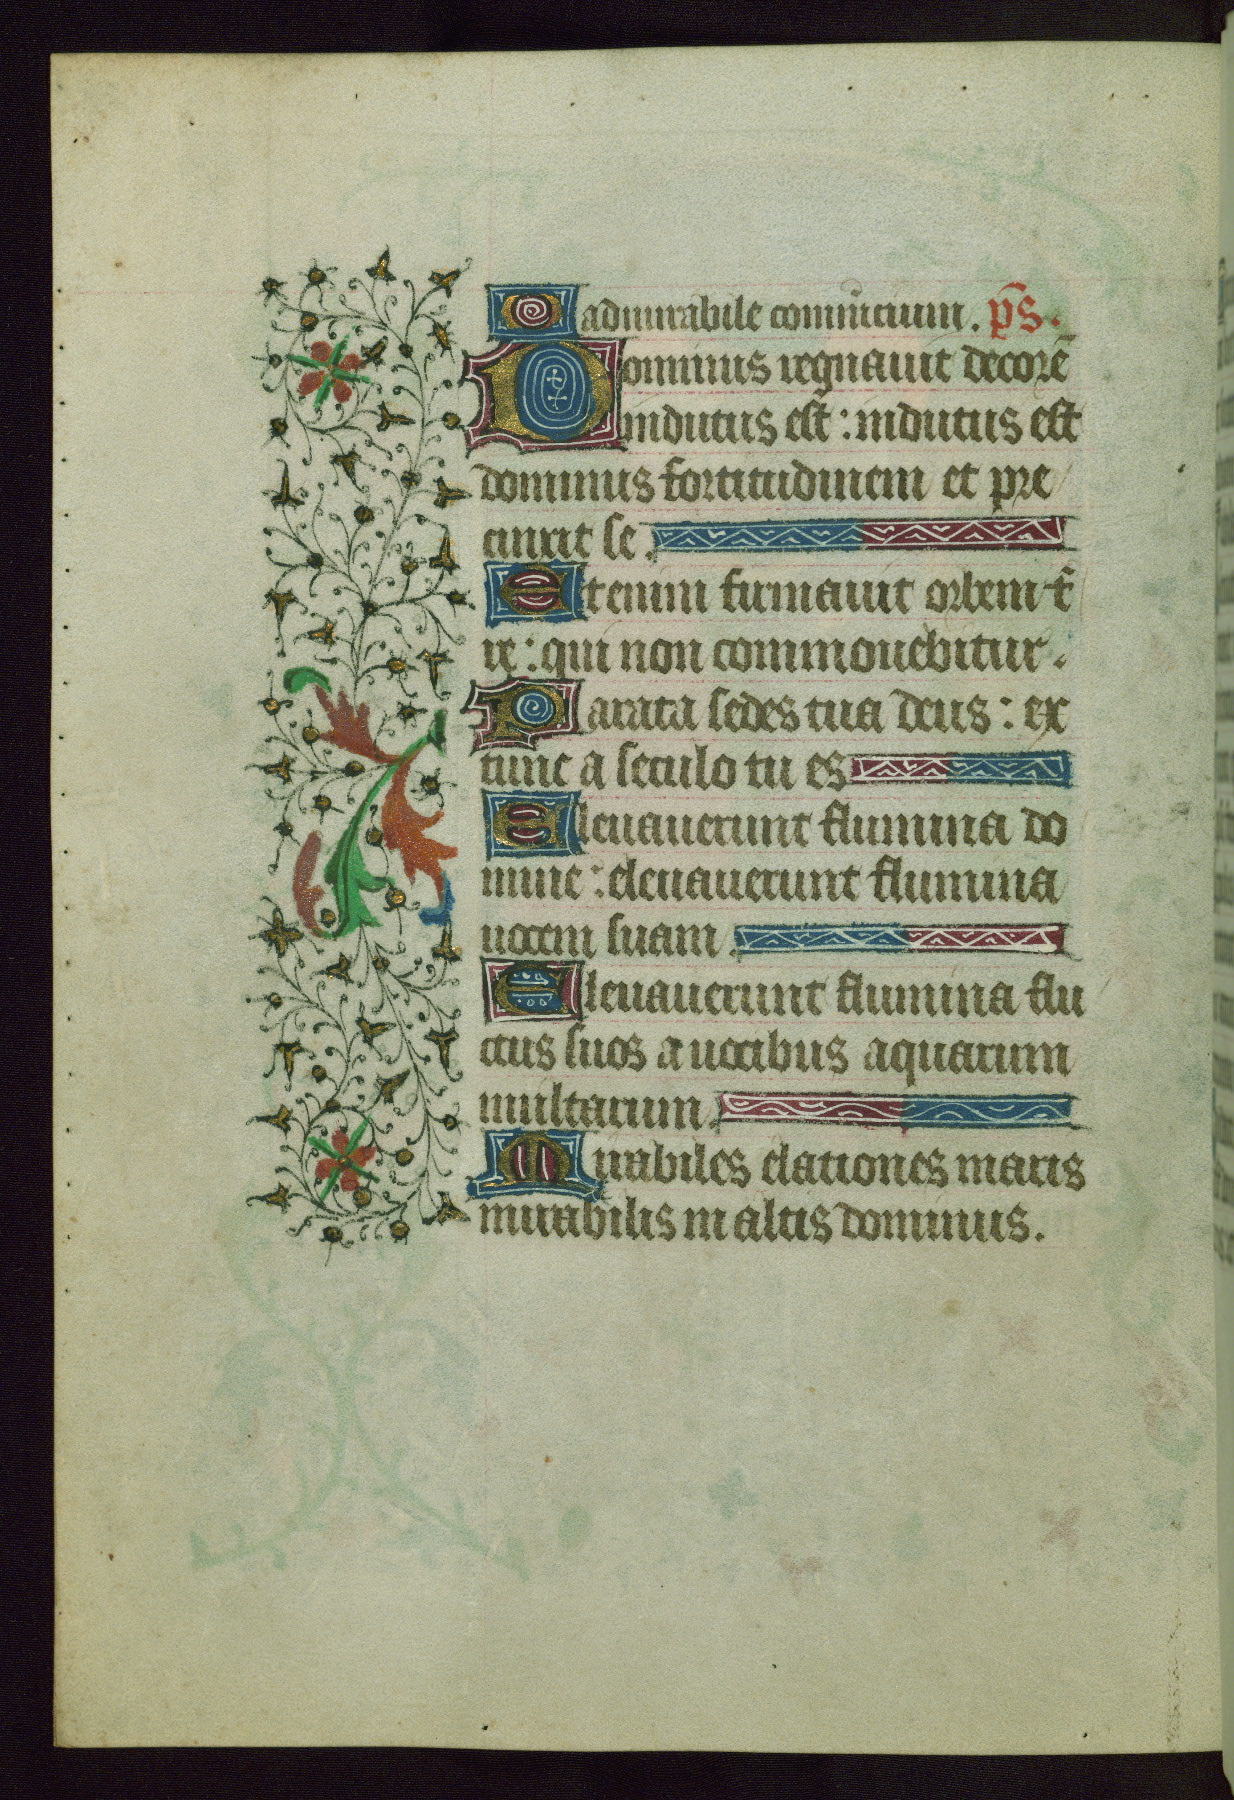 O admirabile comm̄cium. p̄s.
Dominus regnauit decorē
indutus est : indutus est
dominus fortitudinem et pre
cinxit se.
Etenim firmauit orbem t̄
re : qui non commouebitur.
Parata sedes tua deus : ex
tunc a seculo tu es
Eleuauerunt flumina do
mine : eleuauerunt flumina
uocem suam.
Eleuauerunt flumina flu
ctus suos a uocibus aquarum
multarum.
Mirabiles elationes maris
mirabilis in altis dominus.